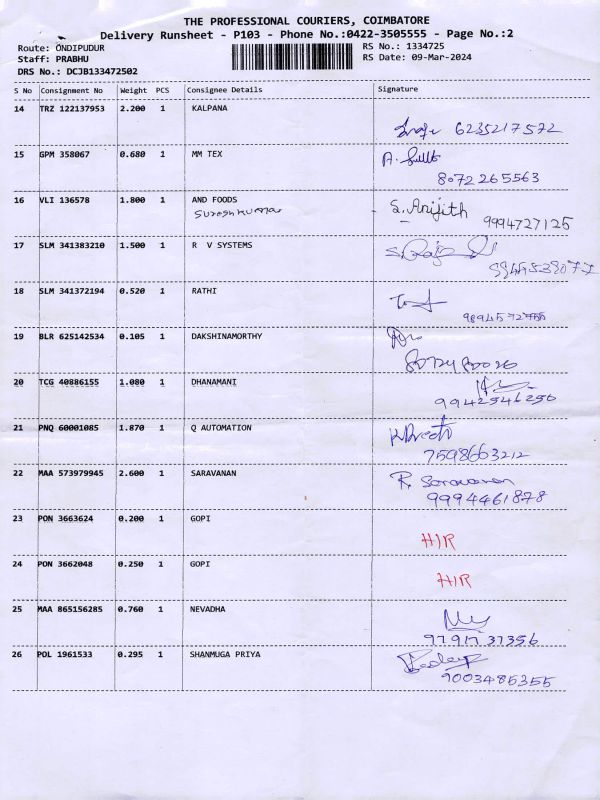 THE PROFESSIONAL COURIERS, COIMBATORE
Delivery Runsheet - P103 - Phone No.:0422-3505555 - Page No.:2
Route: ONDIPUDUR RS No.: 1334725
Staff: PRABHU RS Date: 09-Mar-2024
DRS No.: DCJB133472502
S No Consignment No Weight PCS Consignee Details Signature
14 TRZ 122137953 2.200 1 KALPANA
6235217572
15 GPM 358067 0.680 1 MM TEX
8072265563
16 VLI 136578 1.800 1 AND FOODS
Sureshkumar S. Arijith
9994727125
17 SLM 341383210 1.500 1 R V SYSTEMS
18 SLM 341372194 0.520 1 RATHI
19 BLR 625142534 0.105 1 DAKSHINAMORTHY
20 TCG 40886155 1.080 1 DHANAMANI
9942546250
21 PNQ 60001085 1.870 1 Q AUTOMATION
7598663212
22 MAA 573979945 2.600 1 SARAVANAN
R. Saravanan
9994461878
23 PON 3663624 0.200 1 GOPI
HIR
24 PON 3662048 0.250 1 GOPI
HIR
25 MAA 865156285 0.760 1 NEVADHA
9791737356
26 POL 1961533 0.295 1 SHANMUGA PRIYA
9003485355